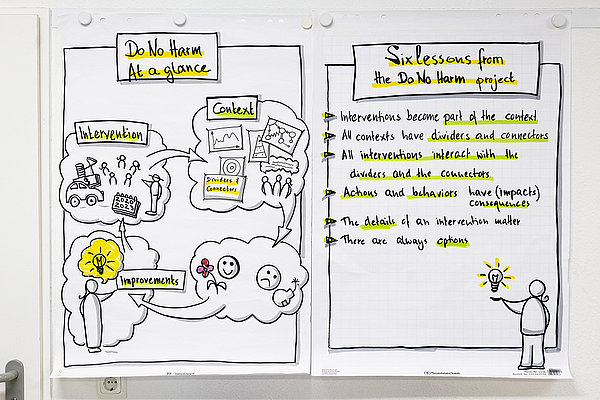 Do No Harm
At a glance
Context
Intervention
Dividers &
Connectors
2020
2023
Improvements
Six lessons from
the Do No Harm project
Interventions become part of the context
All contexts have dividers and connectors
All interventions interact with the
dividers and the connectors
Actions and behaviors have (impacts)
consequences
The details of an intervention matter
There are always options